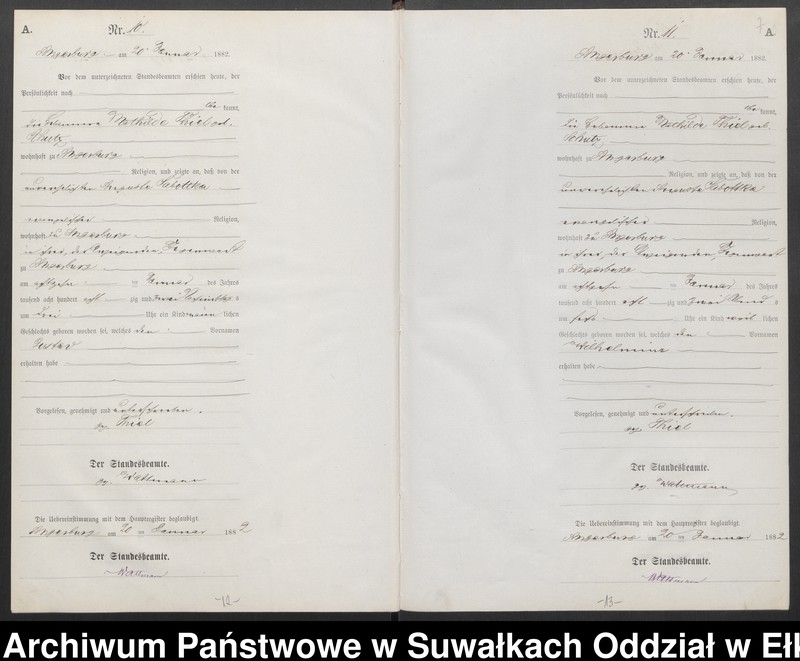 A.
Nr. 10.
Angerburg am 20. Januar 1882.
Vor dem unterzeichneten Standesbeamten erschien heute, der
Persönlichkeit nach
kannt,
die Hebamme Mathilde Thiel geb.
wohnhaft zu Angerburg
Religion, und zeigte an, daß von der
unverehelichten Auguste
evangelischer Religion,
wohnhaft zu Angerburg
zu Angerburg
am achtzehn ten Januar des Jahres
tausend acht hundert acht zig und zwei
um drei Uhr ein Kind männ lichen
Geschlechts geboren worden sei, welches den Vornamen
Gustav
erhalten habe
Vorgelesen, genehmigt und unterschrieben.
gez. Thiel
Der Standesbeamte.
gez.
Die Uebereinstimmung mit dem Hauptregister beglaubigt.
Angerburg am 20 ten Januar 1882
Der Standesbeamte.
-12-
7
A.
Nr. 11.
Angerburg am 20. Januar 1882.
Vor dem unterzeichneten Standesbeamten erschien heute, der
Persönlichkeit nach
kannt,
die Hebamme Mathilde Thiel geb.
wohnhaft zu Angerburg
Religion, und zeigte an, daß von der
unverehelichten Auguste
evangelischer Religion,
wohnhaft zu Angerburg
zu Angerburg
am achtzehn ten Januar des Jahres
tausend acht hundert acht zig und zwei
um sechs Uhr ein Kind weib lichen
Geschlechts geboren worden sei, welches den Vornamen
Wilhelmine
erhalten habe
Vorgelesen, genehmigt und unterschrieben.
gez. Thiel
Der Standesbeamte.
gez.
Die Uebereinstimmung mit dem Hauptregister beglaubigt.
Angerburg am 20 ten Januar 1882
Der Standesbeamte.
-13-
Archiwum Państwowe w Suwałkach Oddział w Ełk